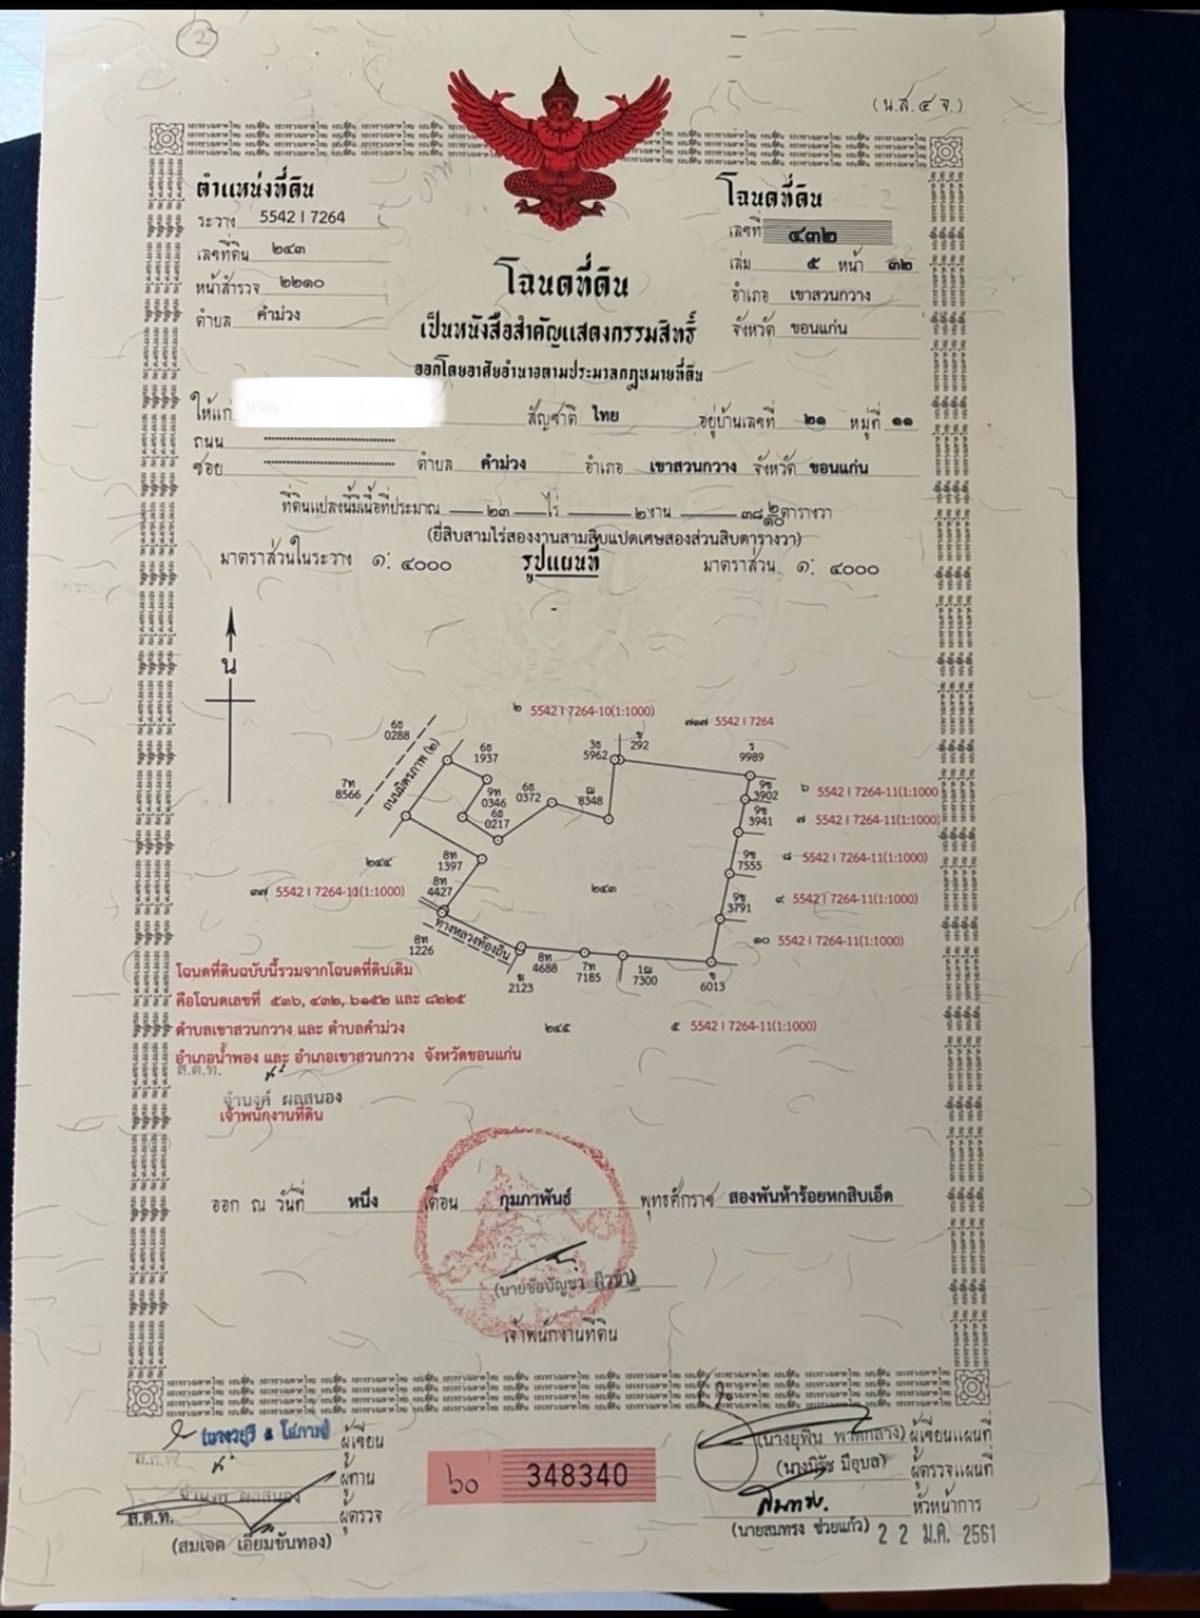 2
(น.ส.๔ จ.)
ตำแหน่งที่ดิน
ระวาง 5542 I 7264
เลขที่ดิน ๒๔๓
หน้าสำรวจ ๒๒๑๐
ตำบล คำม่วง
โฉนดที่ดิน
เลขที่ ๔๓๒
เล่ม ๕ หน้า ๓๒
อำเภอ เขาสวนกวาง
จังหวัด ขอนแก่น
โฉนดที่ดิน
เป็นหนังสือสำคัญแสดงกรรมสิทธิ์
ออกโดยอาศัยอำนาจตามประมวลกฎหมายที่ดิน
ให้แก่ สัญชาติ ไทย อยู่บ้านเลขที่ ๒๑ หมู่ที่ ๑๑
ถนน
ซอย ตำบล คำม่วง อำเภอ เขาสวนกวาง จังหวัด ขอนแก่น
ที่ดินแปลงนี้มีเนื้อที่ประมาณ ๒๓ ไร่ ๒ งาน ๓๘ ๒/๑๐ ตารางวา
(ยี่สิบสามไร่สองงานสามสิบแปดเศษสองส่วนสิบตารางวา)
มาตราส่วนในระวาง ๑: ๔๐๐๐ รูปแผนที่ มาตราส่วน ๑: ๔๐๐๐
น
๒ 5542 I 7264-10(1:1000)
๗๑๗ 5542 I 7264
6ธ
0288
6ธ
1937
3ธ
5962
ข
292
ร
9989
7ท
8566
ถนนมิตรภาพ (๒)
9ท
0346
6ธ
0372
ฌ
8348
6ธ
0217
9ข
3902
๖ 5542 I 7264-11(1:1000
9ข
3941
๗ 5542 I 7264-11(1:1000)
๒๔๔
8ท
1397
9ข
7555
๘ 5542 I 7264-11(1:1000)
๓๗ 5542 I 7264-11(1:1000)
8ท
4427
๒๔๓
9ข
3791
๙ 5542 I 7264-11(1:1000)
ทางหลวงท้องถิ่น
8ท
1226
8ท
4688
7ท
7185
1ฌ
7300
๑๐ 5542 I 7264-11(1:1000)
2123
ข
6013
๒๔๕
๕ 5542 I 7264-11(1:1000)
โฉนดที่ดินฉบับนี้รวมจากโฉนดที่ดินเดิม
คือโฉนดเลขที่ ๕๓๖, ๔๓๒, ๖๑๕๒ และ ๘๒๒๕
ตำบลเขาสวนกวาง และ ตำบลคำม่วง
อำเภอน้ำพอง และ อำเภอเขาสวนกวาง จังหวัดขอนแก่น
ส.ต.ท.
จำนงค์ ผลสนอง
เจ้าพนักงานที่ดิน
ออก ณ วันที่ หนึ่ง เดือน กุมภาพันธ์ พุทธศักราช สองพันห้าร้อยหกสิบเอ็ด
เจ้าพนักงานที่ดิน
ผู้เขียน
ส.ต.ท.
ผู้ทาน
จำนงค์ ผลสนอง
ส.ต.ท. ผู้ตรวจ
(สมเจต เอี่ยมขันทอง)
๖๐ 348340
ผู้เขียนแผนที่
ผู้ตรวจแผนที่
หัวหน้าการ
(นายสมทรง ช่วยแก้ว) 22 ม.ค. 2561